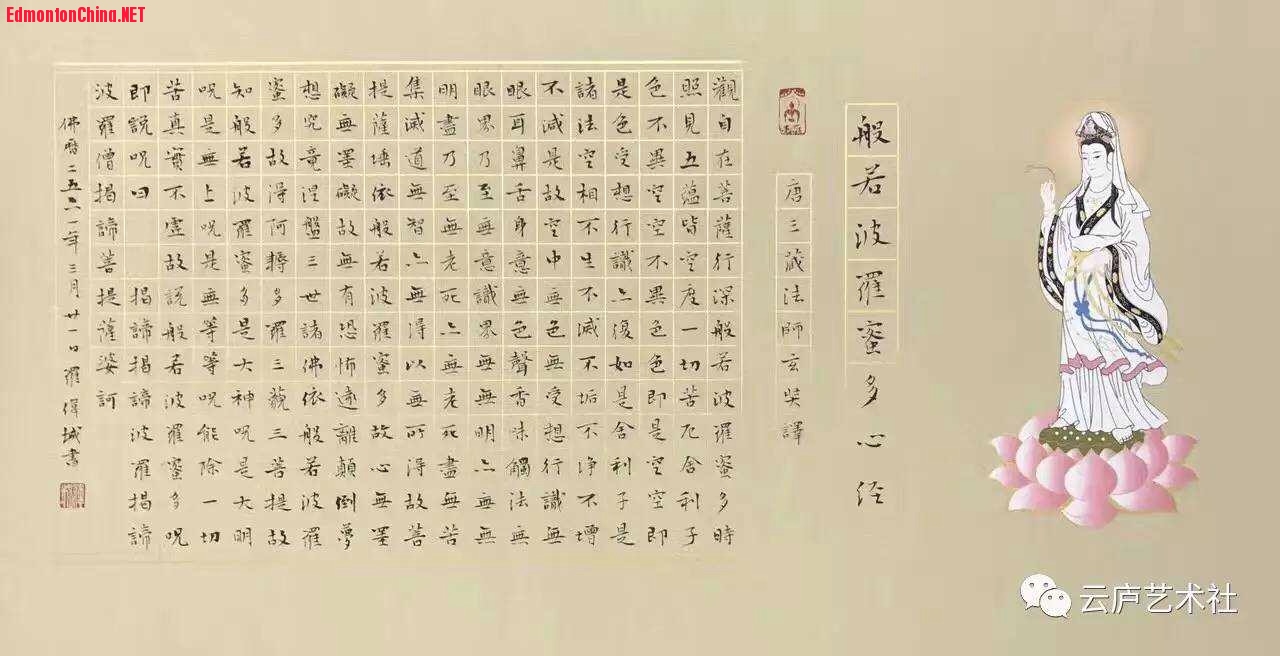 EdmontonChina.NET
般若波羅蜜多心经
唐三藏法師玄奘譯
觀自在菩薩行深般若波羅蜜多時
照見五蘊皆空度一切苦厄舍利子
色不異空空不異色色即是空空即
是色受想行識亦復如是舍利子是
諸法空相不生不滅不垢不净不增
不減是故空中無色無受想行識無
眼耳鼻舌身意無色聲香味觸法無
眼界乃至無意識界無無明亦無無
明盡乃至無老死亦無老死盡無苦
集滅道無智亦無得以無所得故菩
提薩埵依般若波羅蜜多故心無罣
礙無罣礙故無有恐怖遠離顛倒夢
想究竟涅盤三世諸佛依般若波羅
蜜多故得阿耨多羅三藐三菩提故
知般若波羅蜜多是大神呪是大明
呪是無上呪是無等等呪能除一切
苦真實不虛故說般若波羅蜜多呪
即說呪曰 揭諦揭諦波羅揭諦
波羅僧揭諦菩提薩婆訶
佛曆二五六一年三月廿一日羅偉城書
云庐艺术社